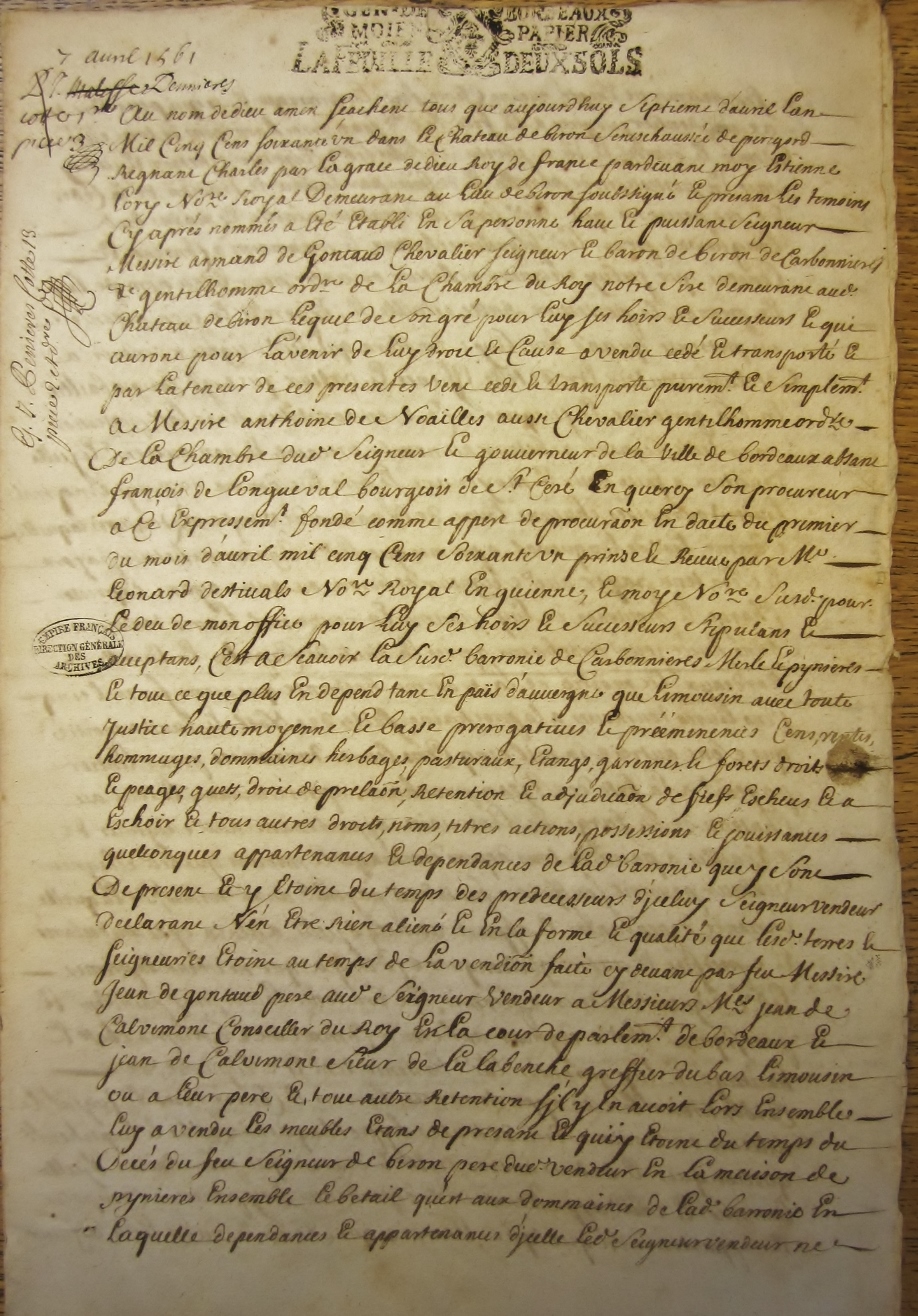 GEN. DE BORDEAUX
MOIEN PAPIER
LA FEUILLE DEUX SOLS
7 avril 1561
Pennieres
cotte 1re
piece 3
Au nom de dieu amen scachent tous que aujourdhuy Septieme d'avril l'an
Mil Cinq Cens soixante un dans le Chateau de biron Seneschaussée de perigord
Regnant Charles par la grace de dieu Roy de france pardevant moy Estienne
Lory Nore Royal Demeurant au lieu de biron soubsigné Et presant les temoins
Cy aprés nommés a Eté Etabli En sa personne haut Et puissant Seigneur
Messire armand de Gontaud Chevalier seigneur Et baron de biron de Carbonnieres
gentilhomme ordre de la Chambre du Roy notre Sire demeurant aud.
Chateau de biron Lequel de son gré pour luy ses hoirs Et Successeurs Et qui
auront pour l'avenir de luy droit Et Cause a vendu cedé Et transporté Et
par la teneur de ces presentes vent cede Et transporte puremt. Et Simplemt.
a Messire anthoine de Noailles aussi Chevalier gentilhomme ordre
de la Chambre dud. Seigneur Et gouverneur de la ville de bordeaux absant
françois de Longueval bourgeois de St. Ceré En quercy Son procureur
a Ce Expressemt. fondé comme appert de procuraõn En datte du premier
du mois d'avril mil cinq Cens Soixante un prinse Et Receue par Me.
Leonard destivals Nore Royal En guienne, Et moy Nore Susd. pour
Le deu de mon office pour luy Ses hoirs Et Successeurs Stipulans Et
EMPIRE FRANÇAIS
DIRECTION GÉNÉRALE
DES
ARCHIVES
aceptans, C'est a Scavoir la Susd. barronie de Carbonnieres Merle Et pynieres
Et tout ce que plus En depend tant En païs d'auvergne que Limousin avec toute
Justice haute moyenne Et basse prerogatives Et prééminences Cens, rentes,
hommages, dommaines herbages, pasturaux, Etangs, garennes, Et forets droits
Et peages, guets, droit de prelaõn, Retention Et adjudicaõn de fiefs Escheus Et a
Eschoir Et tous autres droits, noms, titres actions, possessions Et jouissances
quelconques appartenances Et dependances de lad. barronie que y Sont
De present Et y Etoint du temps des predecesseurs d'jceluy Seigneur vendeur
declarant N'en Etre Rien aliené Et En la forme Et qualité que lesd. terres Et
Seigneuries Etoint au temps de la vendiõn faite cy devant par feu Messire
Jean de gontaud pere aud. Seigneur Vendeur a Messieurs Mes jean de
Calvimont Conseiller du Roy En la cour de parlemt. de bordeaux Et
jean de Calvimont Sieur de la labenche greffier du bas Limousin
ou a leur pere Et toute autre Retention s'jl y En avoit lors Ensemble
Luy a vendu les meubles Etans de present Et qui y Etoint du temps du
Decés du feu Seigneur de biron pere dud. vendeur En la maison de
pynieres Ensemble le betail qu'est aux dommaines de lad. barronie En
Laquelle dependances Et appartenances d'jcelle led. Seigneur vendeur ne